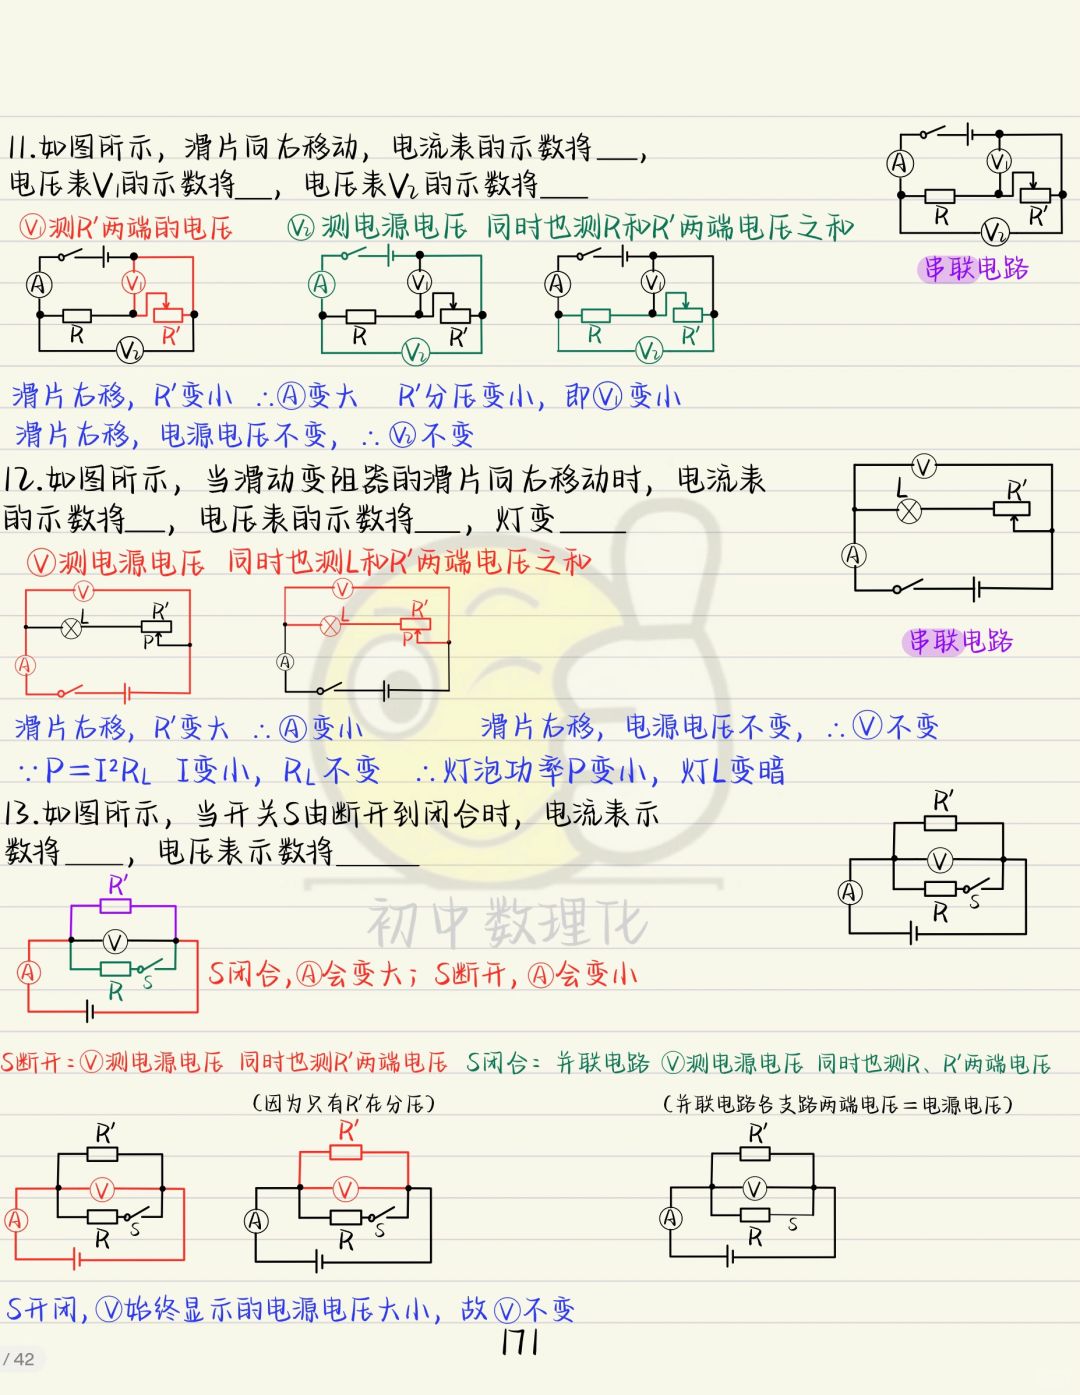 11.如图所示，滑片向右移动，电流表的示数将___，
电压表V₁的示数将___，电压表V₂的示数将____
V₁测R′两端的电压 V₂测电源电压 同时也测R和R′两端电压之和
A V₁ R R′ V₂
串联电路
A V₁ R R′ V₂
A V₁ R R′ V₂
A V₁ R R′ V₂
滑片右移，R′变小 ∴A变大 R′分压变小，即V₁变小
滑片右移，电源电压不变，∴V₂不变
12.如图所示，当滑动变阻器的滑片向右移动时，电流表
的示数将___，电压表的示数将___，灯变____
V测电源电压 同时也测L和R′两端电压之和
V L R′ A
串联电路
V L R′ P A
V L R′ P A
滑片右移，R′变大 ∴A变小 滑片右移，电源电压不变，∴V不变
∵P=I²RL I变小，RL不变 ∴灯泡功率P变小，灯L变暗
13.如图所示，当开关S由断开到闭合时，电流表示
数将____，电压表示数将_____
R′ V A R S
初中数理化
R′ V A R S
S闭合，A会变大；S断开，A会变小
S断开：V测电源电压 同时也测R′两端电压 S闭合：并联电路 V测电源电压 同时也测R、R′两端电压
(因为只有R′在分压) (并联电路各支路两端电压=电源电压)
R′ V A R S
R′ V A R S
R′ V A R S
S开闭，V始终显示的电源电压大小，故V不变
171
/ 42